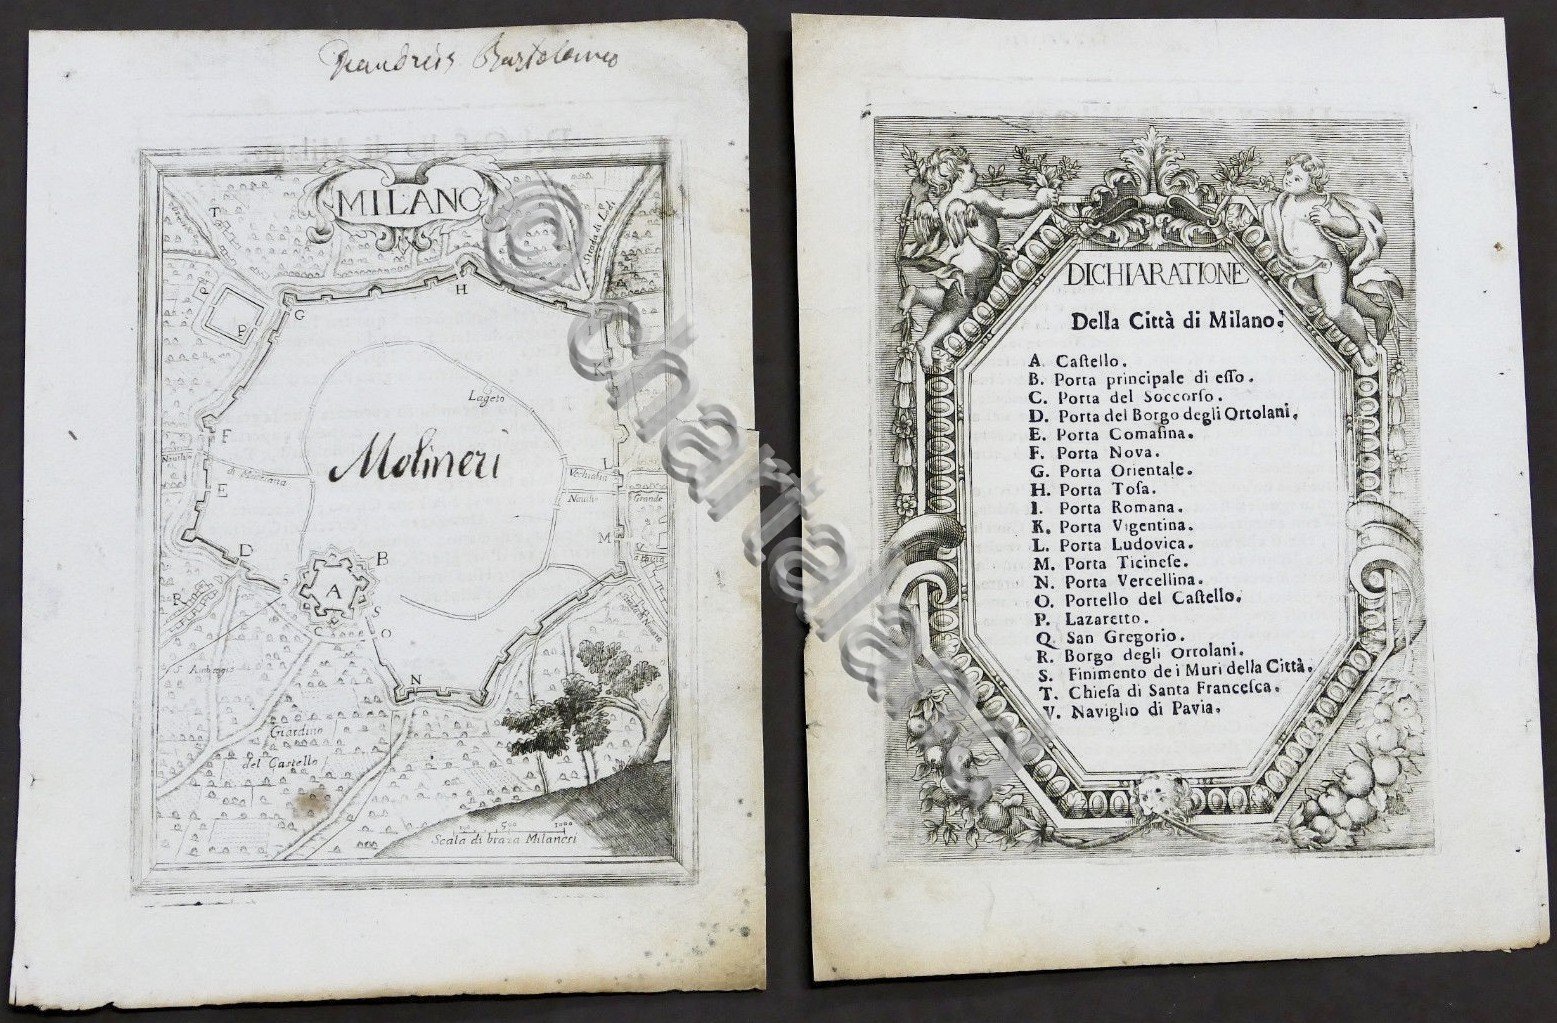 Bartolomeo
MILANO
T
Strada di Lodi
Q
P
G
H
K
Lageto
F
Molineri
I
di Martesana
Vechiabia
E
Navilio
Grande
M
D
B
V
S
A
R
S
C
O
S. Ambrogio
N
Giardino
del Castello
500
1000
Scala di braza Milanesi
DICHIARATIONE
Della Città di Milano.
A. Caſtello.
B. Porta principale di eſſo.
C. Porta del Soccorſo.
D. Porta del Borgo degli Ortolani.
E. Porta Comaſina.
F. Porta Nova.
G. Porta Orientale.
H. Porta Toſa.
I. Porta Romana.
K. Porta Vigentina.
L. Porta Ludovica.
M. Porta Ticineſe.
N. Porta Vercellina.
O. Portello del Caſtello.
P. Lazaretto.
Q. San Gregorio.
R. Borgo degli Ortolani.
S. Finimento de i Muri della Città.
T. Chieſa di Santa Franceſca.
V. Naviglio di Pavia.